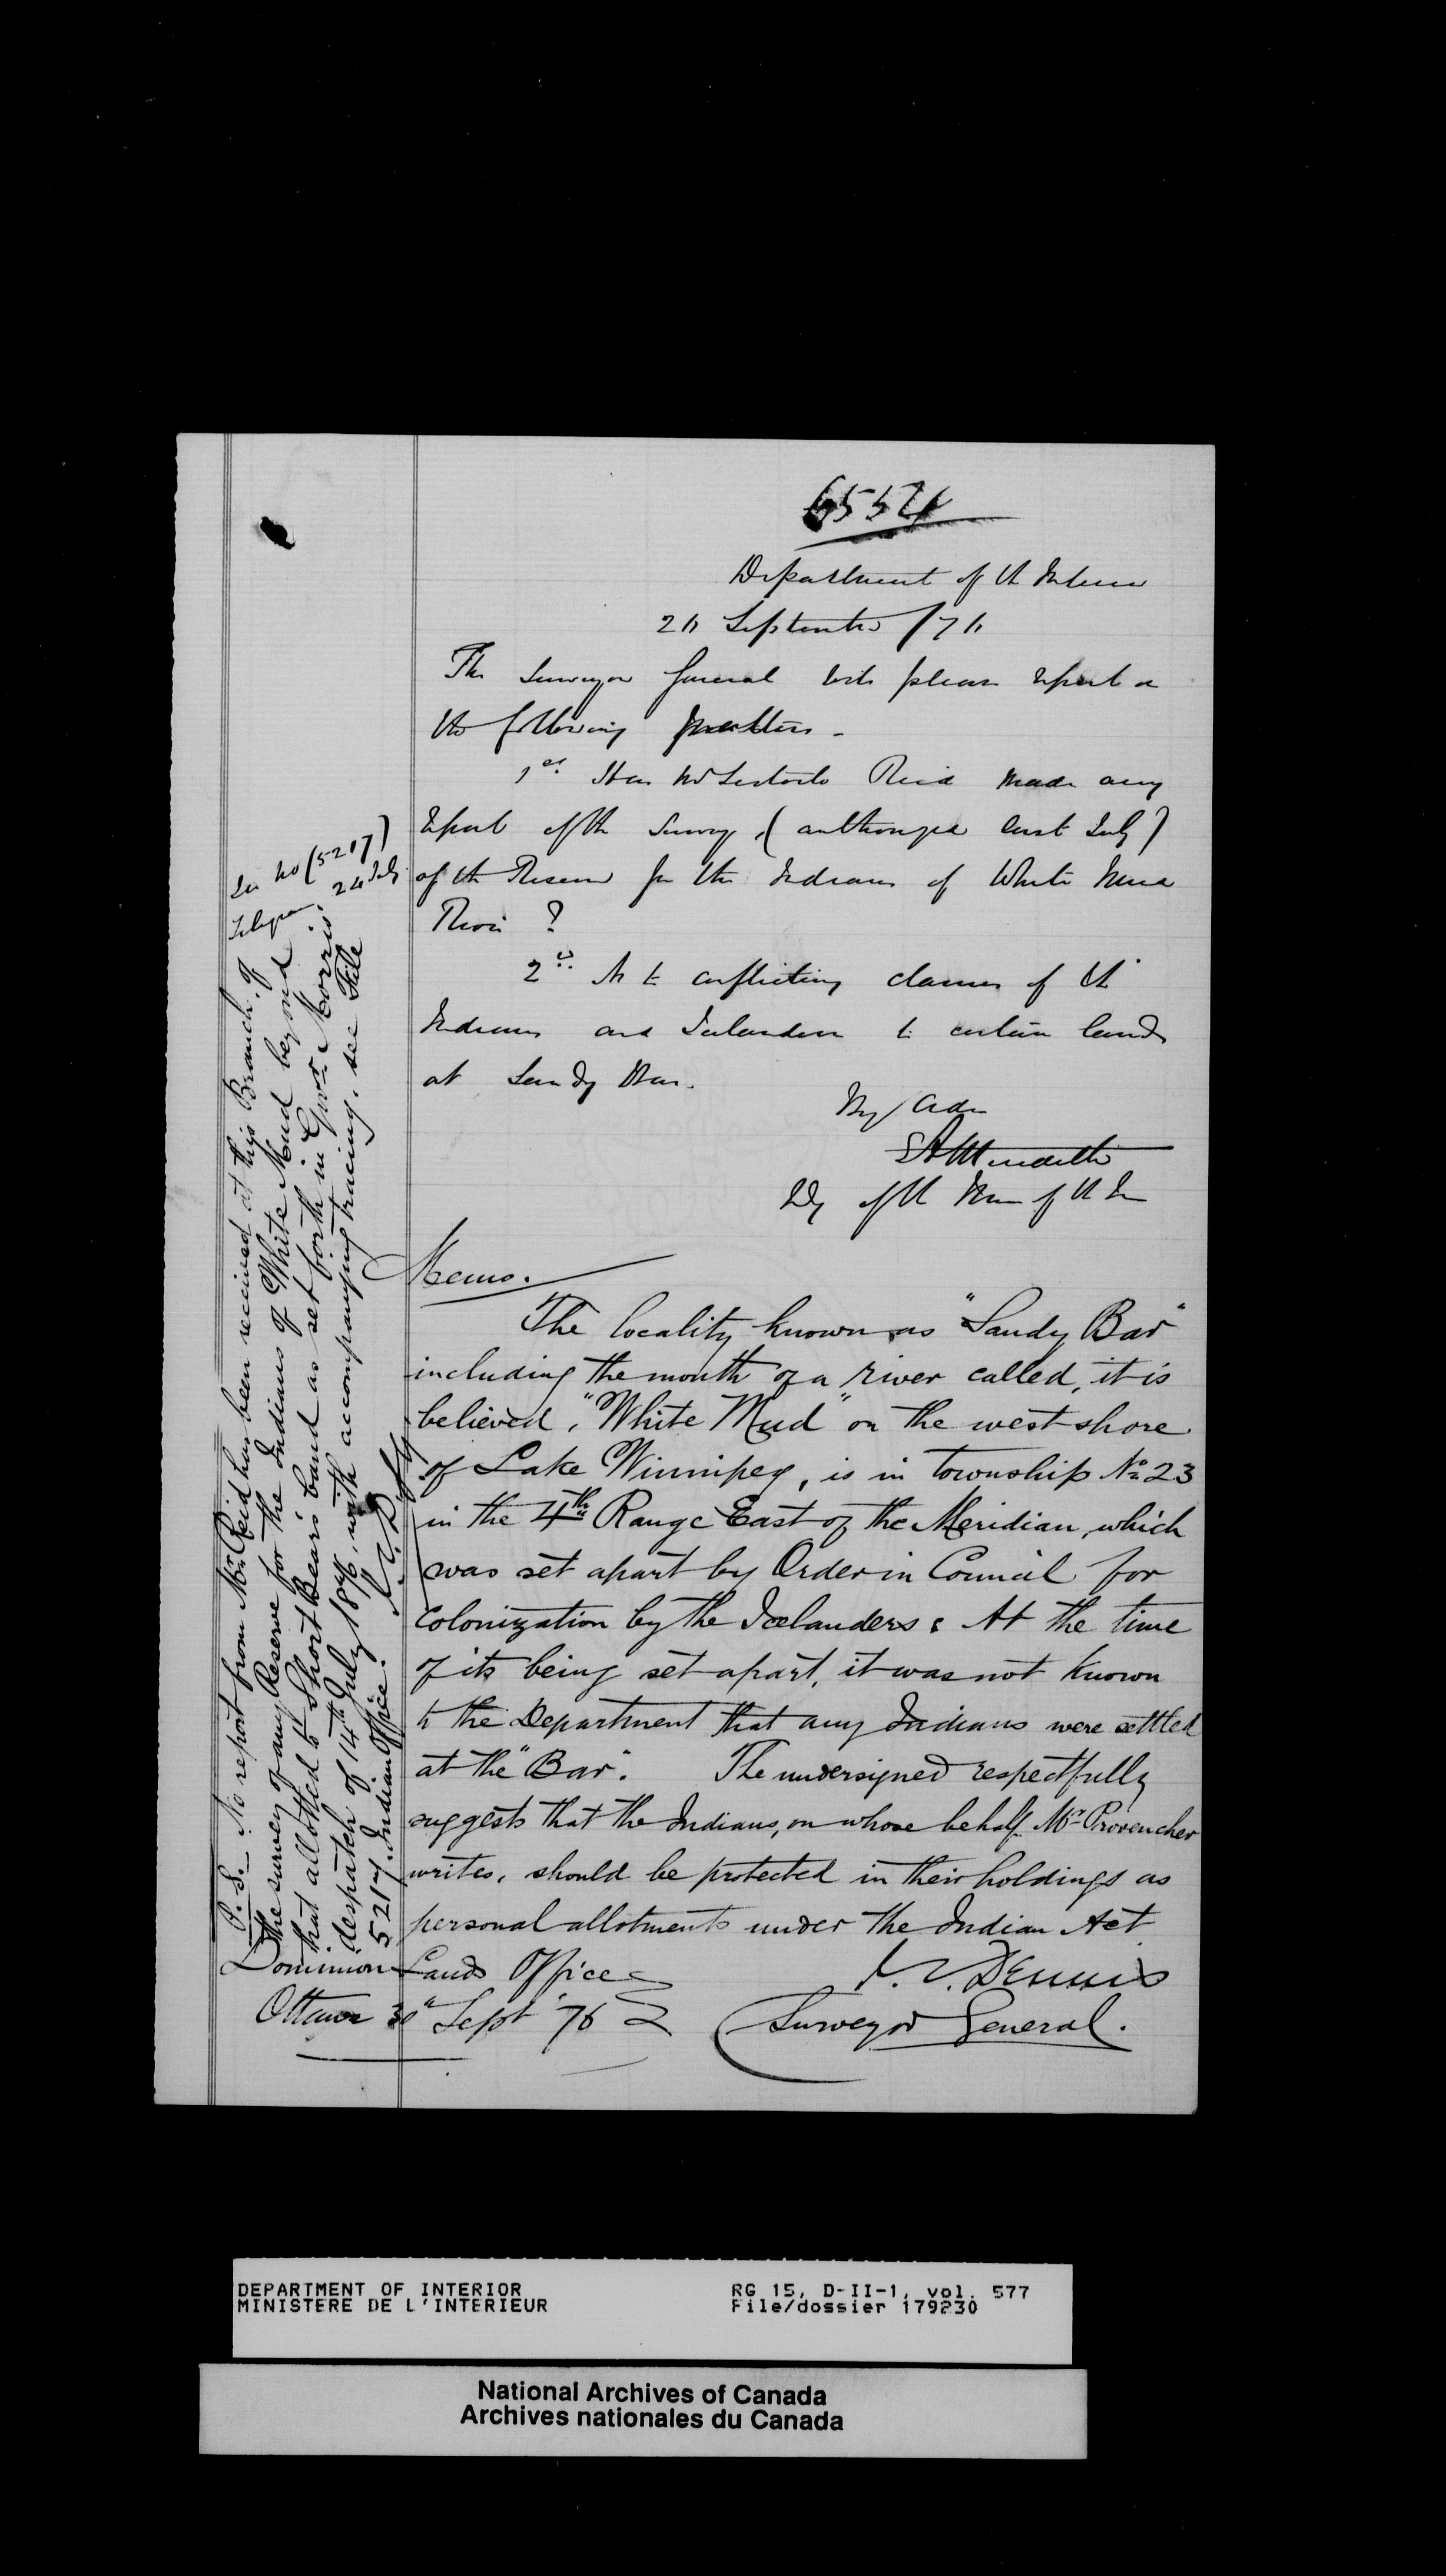 Department of the Interior
26 September /76
The Surveyor General will please report on
the following matters -
1st Has Mr Lestock Reid made any
report of the Survey, (authorized last July)
of the Reserve for the Indians of White Mud
River ?
2nd As to conflicting claims of the
Indians and Icelanders to certain lands
at Sandy Bar.
By order
EAMeredith
of the Min of the In
See No (5217)
Telegram 24 July
Memo.
The locality known as "Sandy Bar"
including the mouth of a river called, it is
believed, "White Mud" on the west shore
of Lake Winnipeg, is in township No. 23
in the 4th Range East of the Meridian, which
was set apart by Order in Council for
colonization by the Icelanders; At the time
of its being set apart, it was not known
to the Department that any Indians were settled
at the "Bar". The undersigned respectfully
suggests that the Indians, on whose behalf Mr Provencher
writes, should be protected in their holdings as
personal allotments under the Indian Act
Dominion Lands Office
Ottawa 30th Sept 76
J. S. Dennis
Surveyor General.
P. S. - No report from Mr. Reid has been received at this Branch, of
the survey of any Reserve for the Indians of White Mud beyond
that allotted to Short Bear's band as set forth in Govr Morris'
despatch of 14th July 1876, with accompanying tracing. see File
5217. Indian Office.
DEPARTMENT OF INTERIOR
MINISTERE DE L'INTERIEUR
RG 15, D-II-1, vol. 577
File/dossier 179230
National Archives of Canada
Archives nationales du Canada